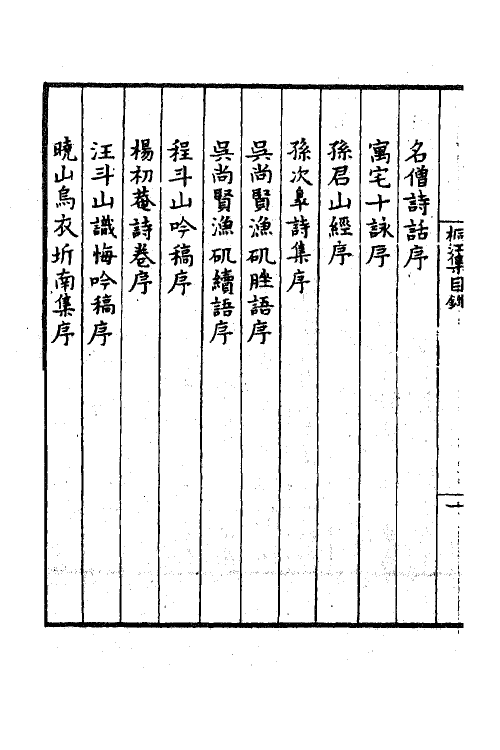 桐江集目錄
一
名僧詩話序
寓宅十詠序
孫君山經序
孫次皐詩集序
吳尚賢漁矶脞語序
吳尚賢漁矶續語序
程斗山吟稿序
楊初菴詩卷序
汪斗山識悔吟稿序
曉山烏衣圻南集序